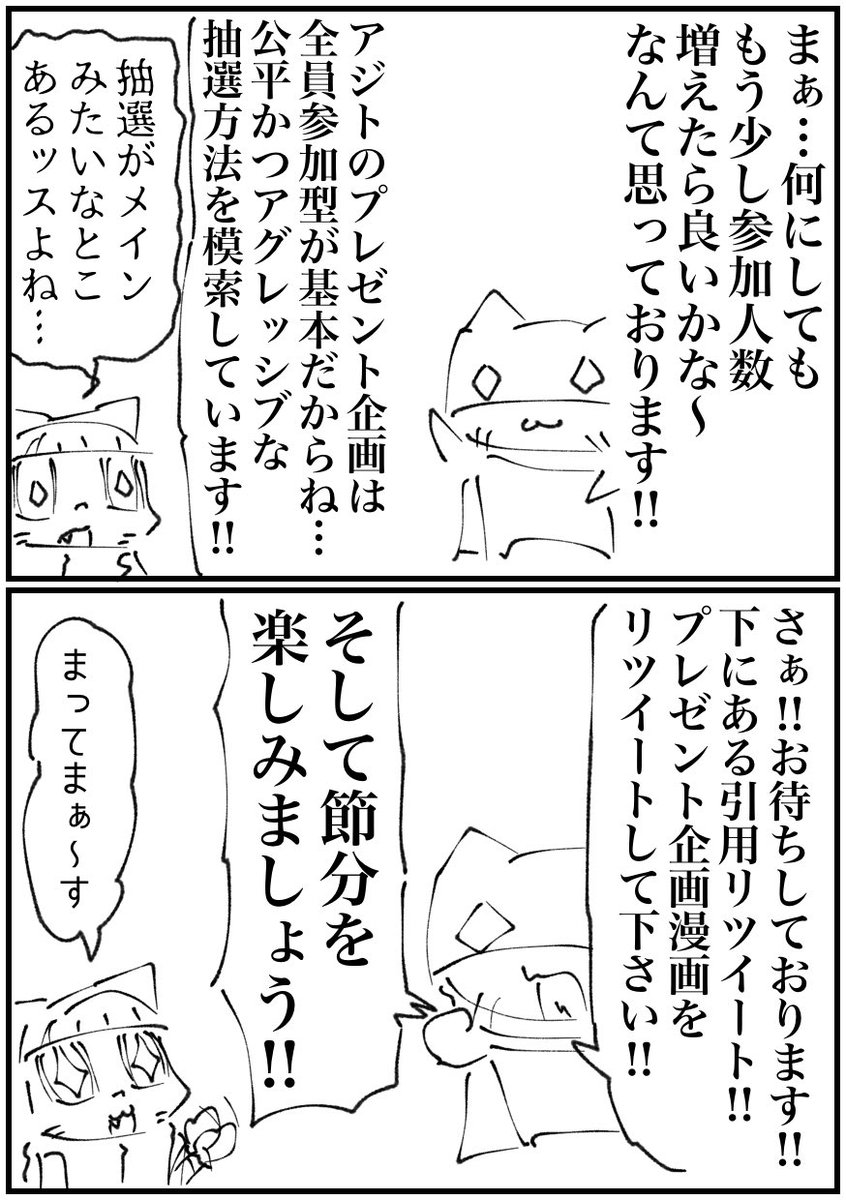 まぁ…何にしても
もう少し参加人数
増えたら良いかな～
なんて思っております!!
アジトのプレゼント企画は
全員参加型が基本だからね…
公平かつアグレッシブな
抽選方法を模索しています!!
抽選がメイン
みたいなとこ
あるッスよね…
さぁ!!お待ちしております!!
下にある引用リツイート!!
プレゼント企画漫画を
リツイートして下さい!!
そして節分を
楽しみましょう!!
まってまぁ～す